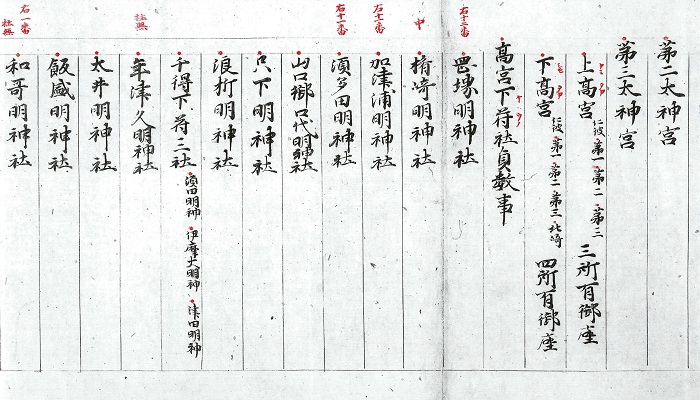 第二大神宮
第三大神宮
上高宮 第一第二第三 三所有御座
下高宮 第一第二第三 四所有御座
高宮下符社員数事
右十二番
明神社
中
明神社
右十二番
加津浦明神社
右十一番
須多田明神社
山口 明神社
只下明神社
浪折明神社
千得下符三社 濱田明神 伊摩大明神 津田明神
社無
年津久明神社
大井明神社
飯盛明神社
右一番
社無
和哥明神社